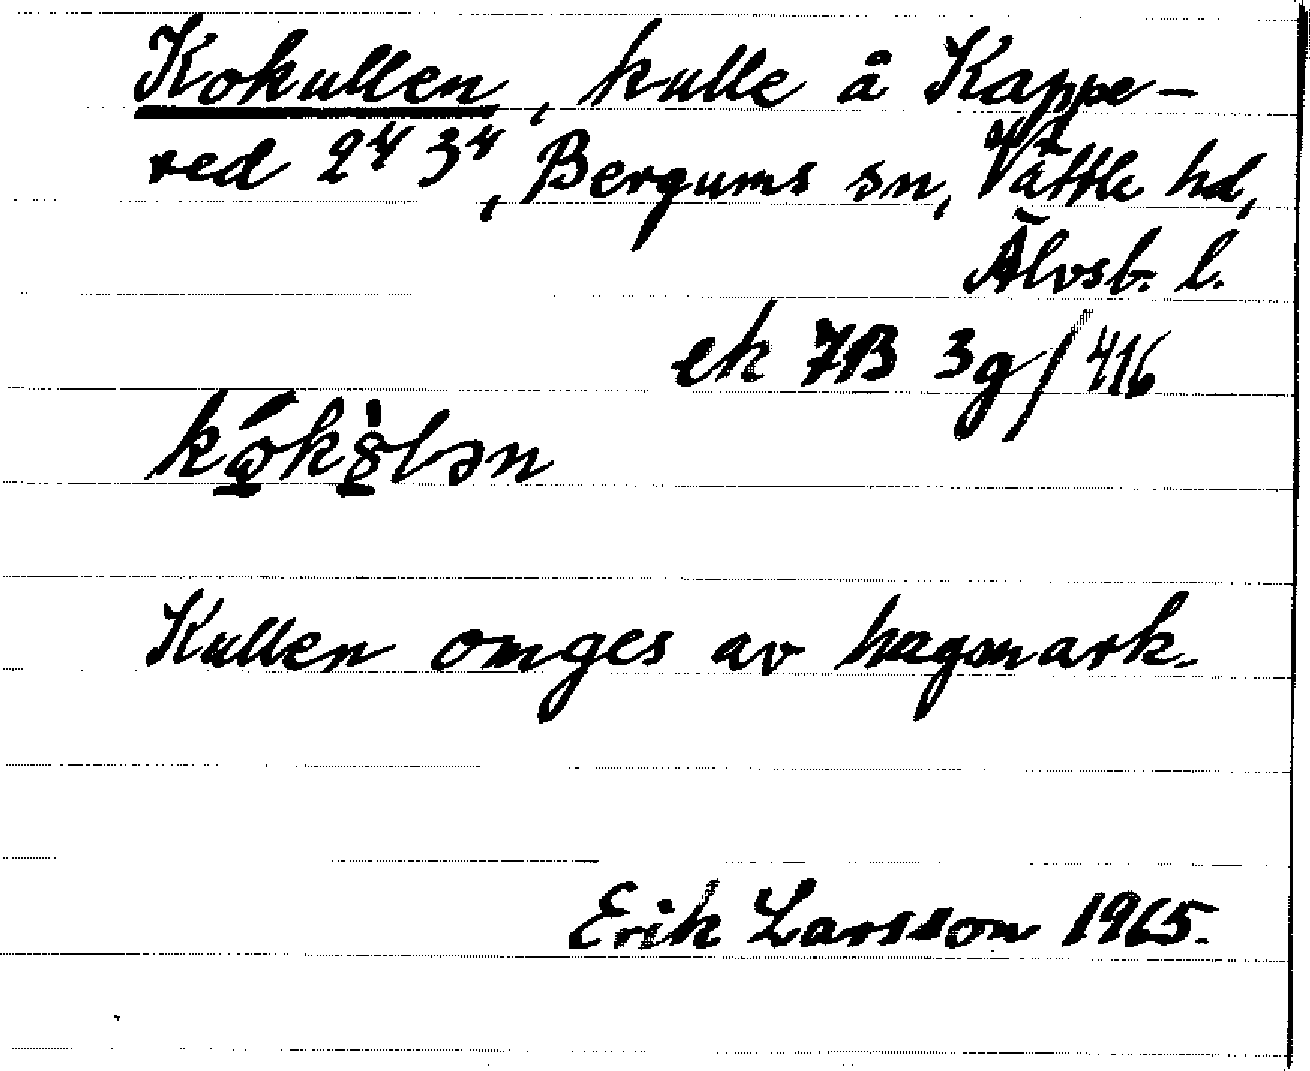 Kokullen, kulle å Kappe-
red 2⁴ 3⁴, Bergums sn, Vättle hd,
Älvsb. l.
ek 7B 3g/416
Kullen omges av hagmark.
Erik Larsson 1965.